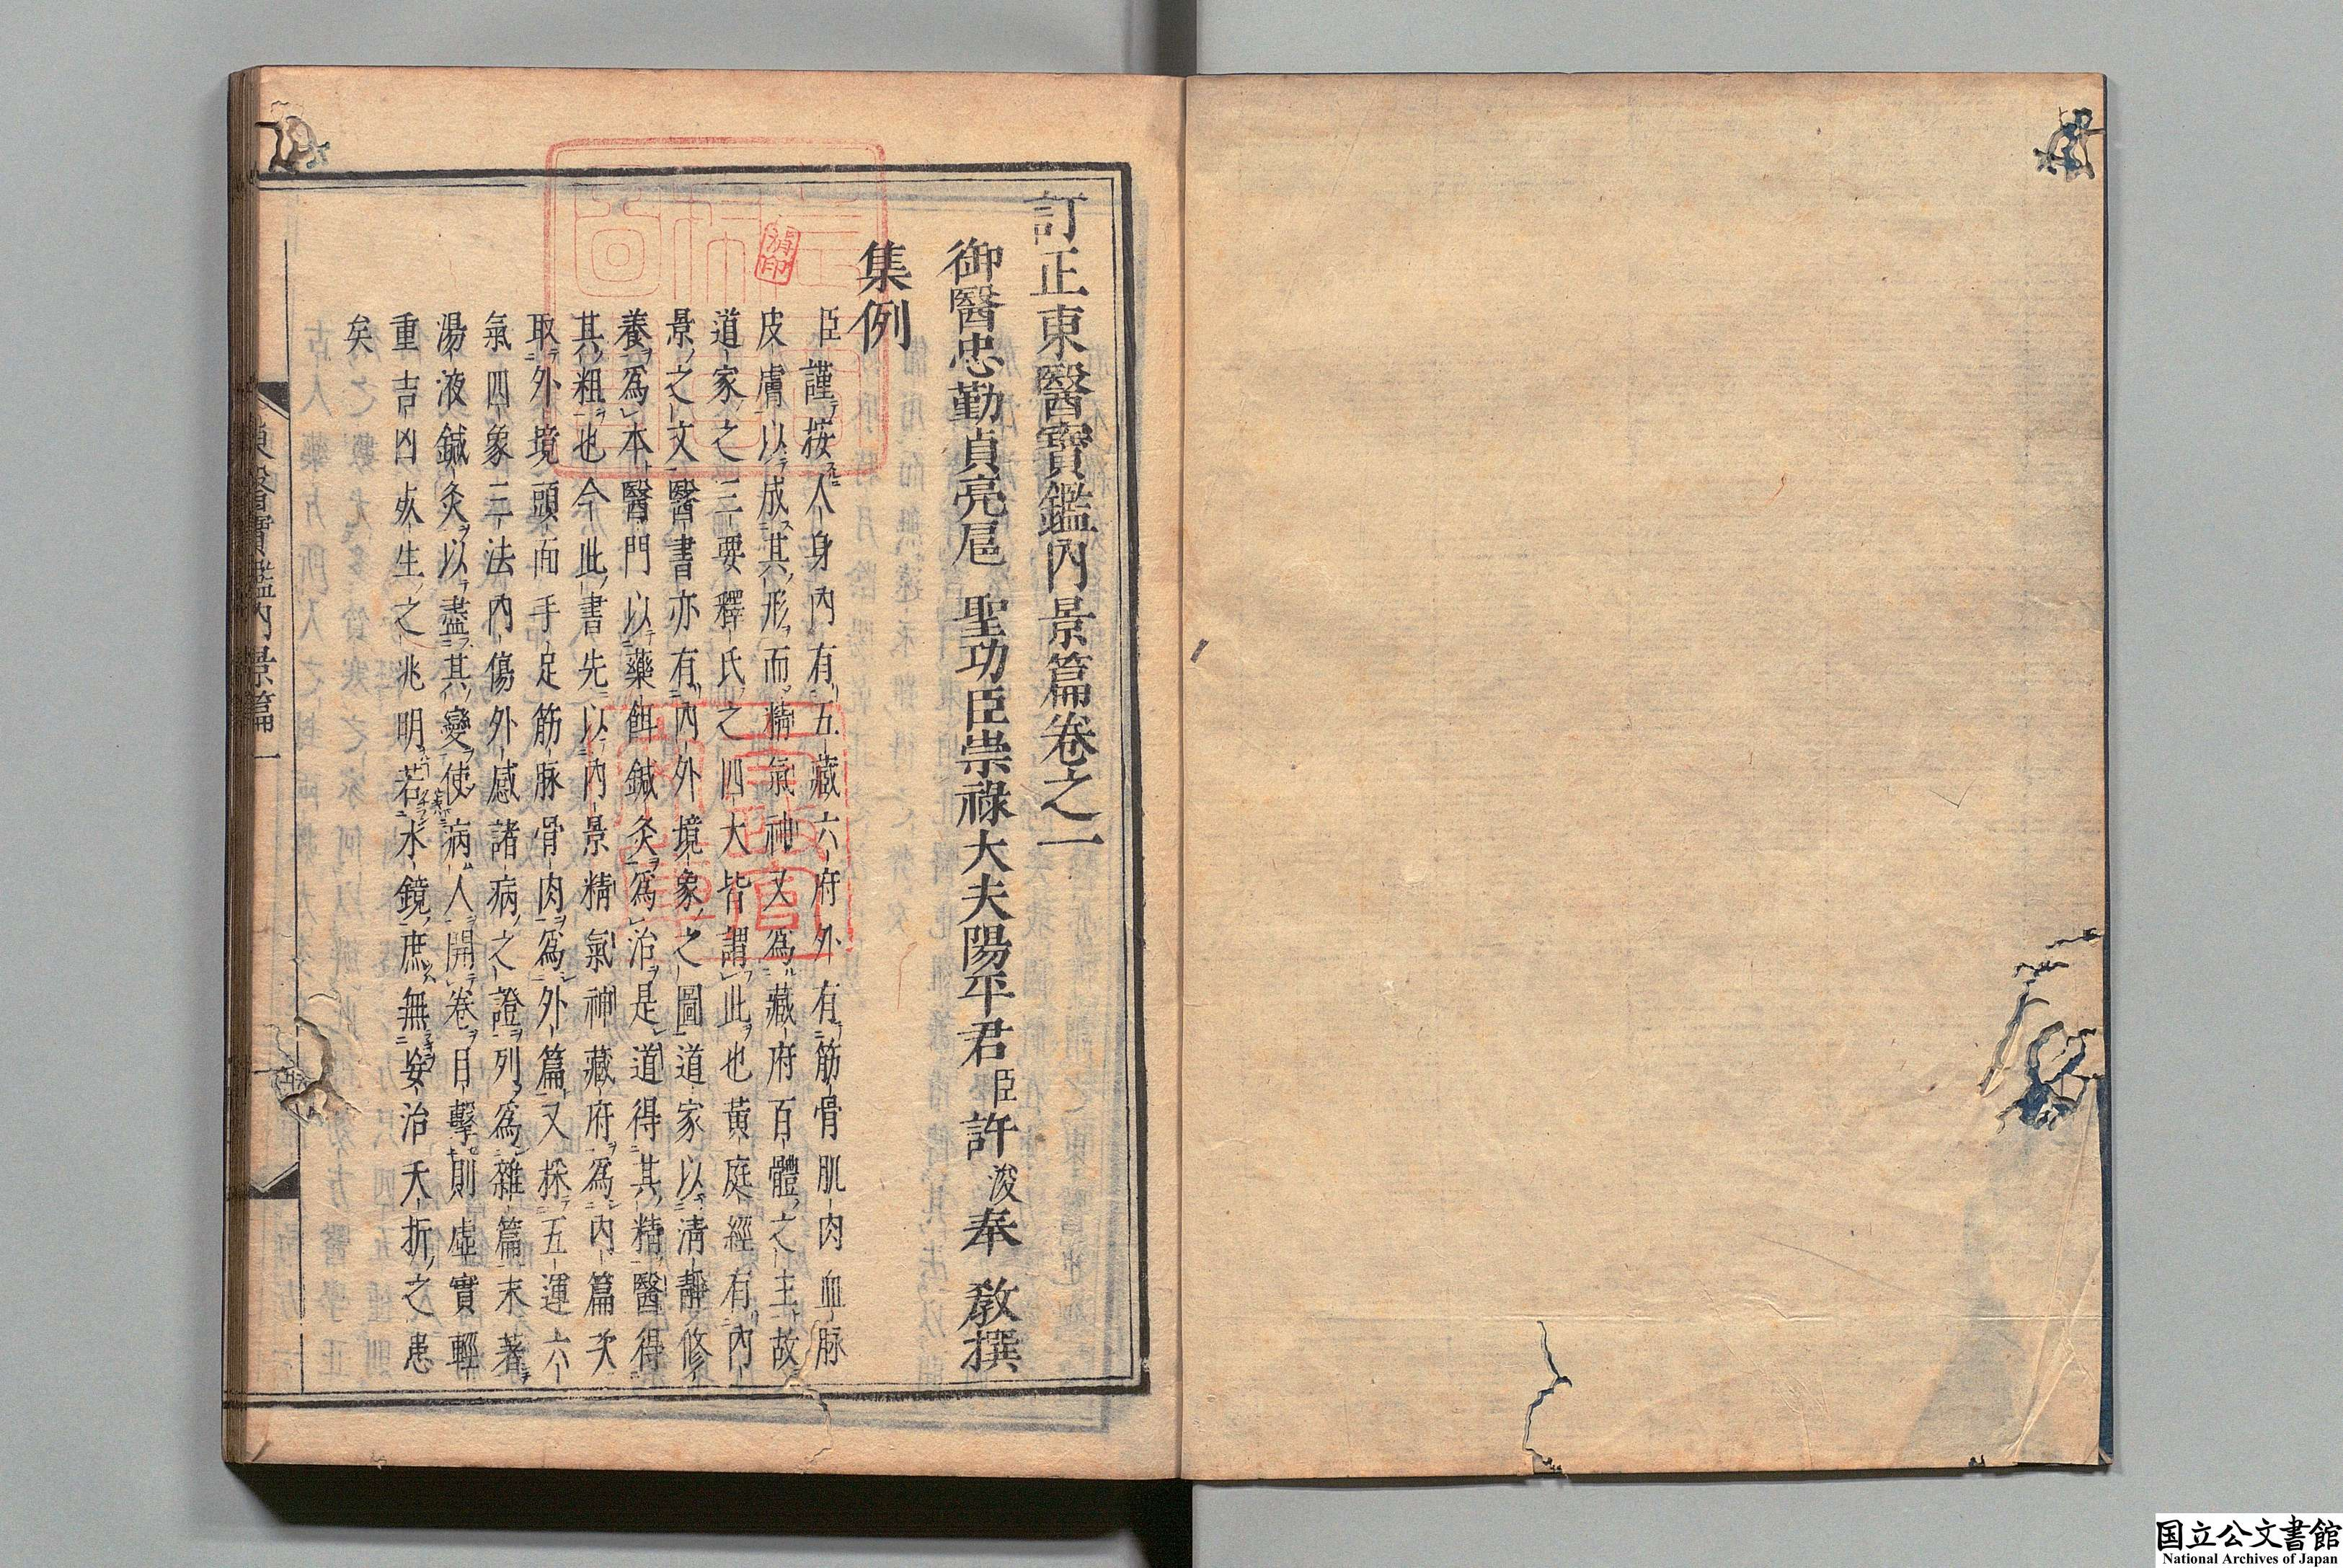 訂正東醫寶鑑内景篇卷之一
御醫忠勤貞亮扈　聖功臣崇祿大夫陽平君臣許浚奉　教撰
集例
臣謹按人身内有五藏六府外有筋骨肌肉血脉
皮膚以成其形而精氣神又爲藏府百體之主故
道家之三要釋氏之四大皆謂此也黄庭經有内
景之文醫書亦有内外境象之圖道家以淸靜修
養爲本醫門以藥餌鍼灸爲治是道得其精醫得
其粗也今此書先以内景精氣神藏府爲内篇次
取外境頭面手足筋脉骨肉爲外篇又採五運六
氣四象三法内傷外感諸病之證列爲雜篇末著
湯液鍼灸以盡其變使病人開卷目擊則虛實輕
重吉凶死生之兆明若水鏡庶無妄治夭折之患
矣
東醫寶鑑内景篇一
消印
国立公文書館
National Archives of Japan